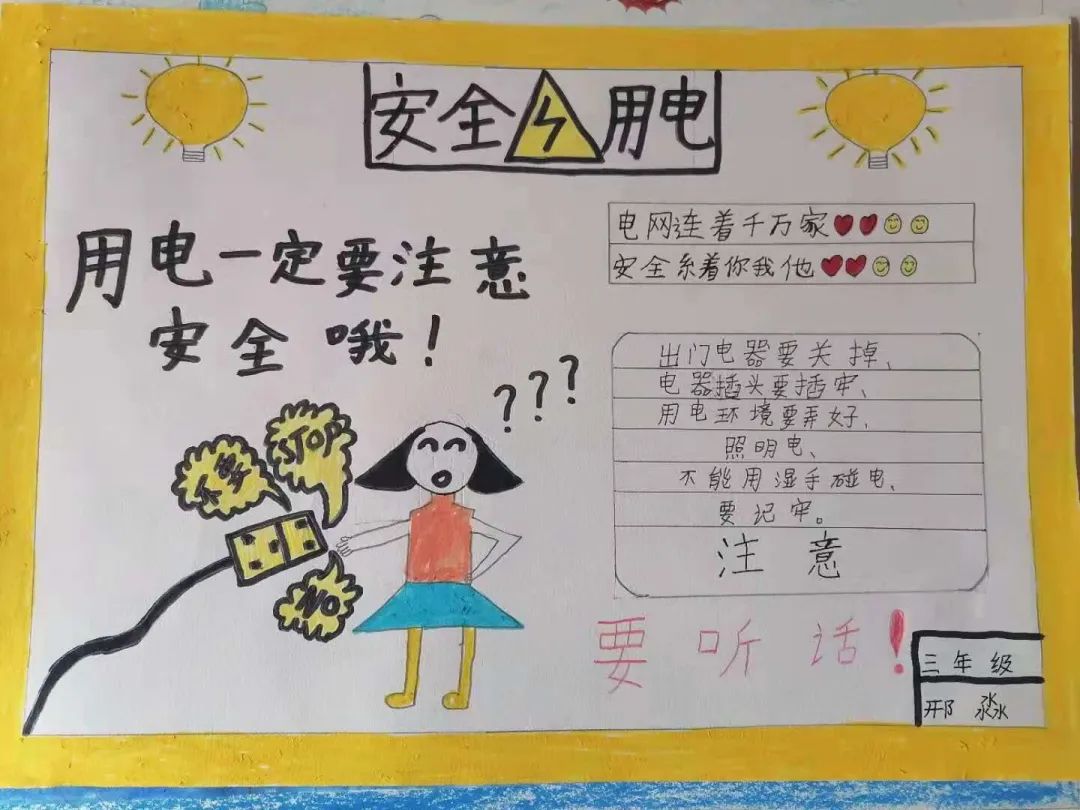 安全用电
用电一定要注意
安全哦！
电网连着千万家
安全系着你我他
出门电器要关掉、
电器插头要插牢、
用电环境要弄好、
照明电、
不能用湿手碰电、
要记牢。
注意
要听话！
???
STOP
不要
NO
三年级
邢淼